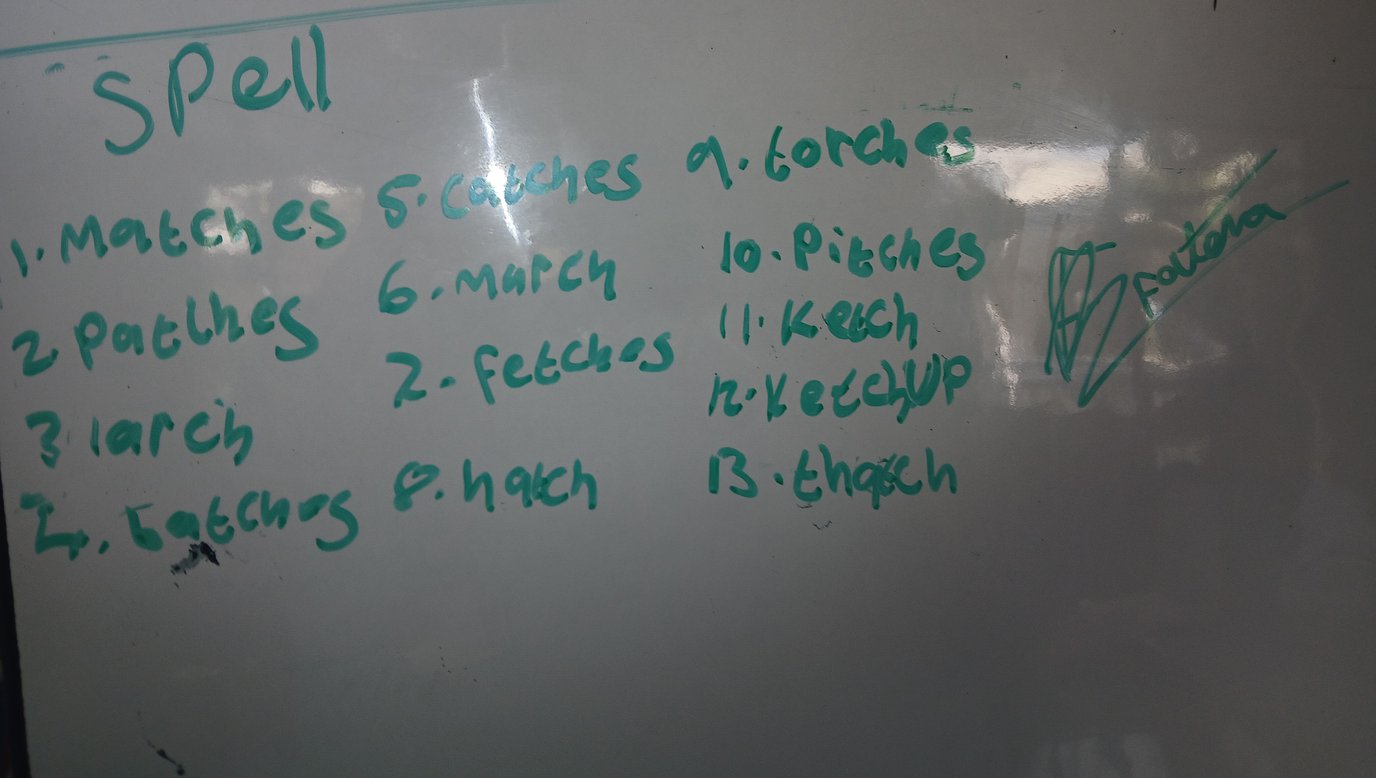 Spell
1. Matches
2 Patches
3 larch
4. batches
5. Catches
6. March
7. Fetches
8. hatch
9. torches
10. Pitches
11. Ketch
12. KetchUP
13. thatch